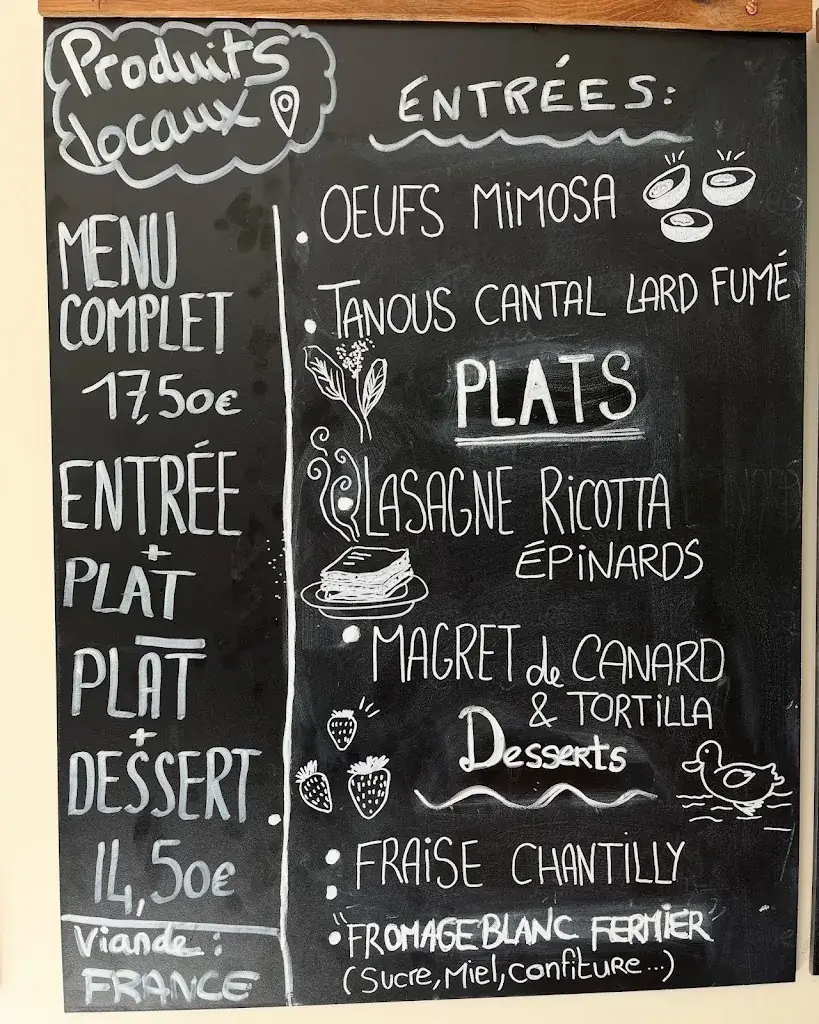 Produits
locaux
MENU
COMPLET
17,50€
ENTRÉE
+
PLAT
PLAT
+
DESSERT
14,50€
Viande :
FRANCE
ENTRÉES:
OEUFS MiMOSA
TANOUS CANTAL LARD FUMÉ
PLATS
LASAGNE RiCOTTA
ÉPiNARDS
MAGRET de CANARD
& TORTiLLA
Desserts
FRAiSE CHANTILLY
FROMAGE BLANC FERMIER
(Sucre, Miel, confiture...)